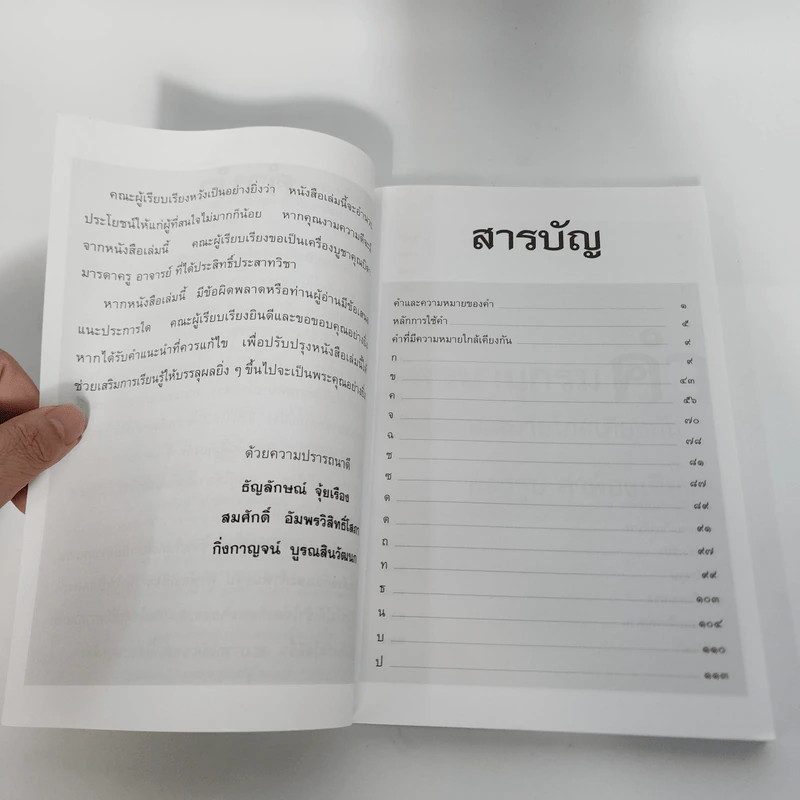 คณะผู้เรียบเรียงหวังเป็นอย่างยิ่งว่า หนังสือเล่มนี้จะอำนวย
ประโยชน์ให้แก่ผู้ที่สนใจไม่มากก็น้อย หากคุณงามความดีจะมี
จากหนังสือเล่มนี้ คณะผู้เรียบเรียงขอเป็นเครื่องบูชาคุณบิดา
มารดาครู อาจารย์ ที่ได้ประสิทธิ์ประสาทวิชา
หากหนังสือเล่มนี้ มีข้อผิดพลาดหรือท่านผู้อ่านมีข้อเสนอ
แนะประการใด คณะผู้เรียบเรียงยินดีและขอขอบคุณอย่างยิ่ง
หากได้รับคำแนะนำที่ควรแก้ไข เพื่อปรับปรุงหนังสือเล่มนี้ให้
ช่วยเสริมการเรียนรู้ให้บรรลุผลยิ่ง ๆ ขึ้นไปจะเป็นพระคุณอย่างยิ่ง
ด้วยความปรารถนาดี
ธัญลักษณ์ จุ้ยเรือง
สมศักดิ์ อัมพรวิสิทธิ์โสภา
กิ่งกาญจน์ บูรณสินวัฒนก
สารบัญ
คำและความหมายของคำ ๑
หลักการใช้คำ ๕
คำที่มีความหมายใกล้เคียงกัน ๙
ก ๙
ข ๔๓
ค ๕๖
จ ๗๐
ฉ ๗๘
ช ๘๑
ซ ๘๗
ด ๘๙
ต ๙๑
ถ ๙๗
ท ๙๙
ธ ๑๐๓
น ๑๐๔
บ ๑๑๐
ป ๑๑๓